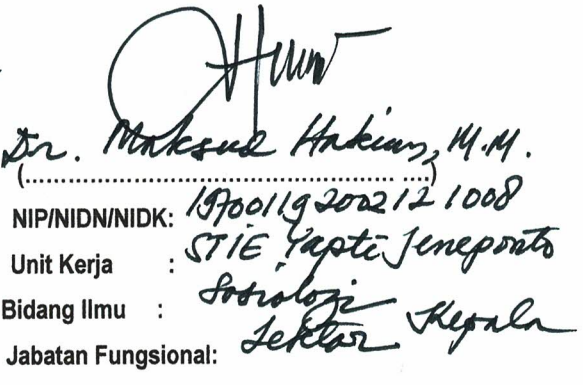 Dr. Maksud Hakim, M.M.
(.......................................................)
NIP/NIDN/NIDK: 19700119 200212 1008
Unit Kerja : STIE Yapti Jeneponto
Bidang Ilmu : Sosiologi
Jabatan Fungsional: Lektor Kepala